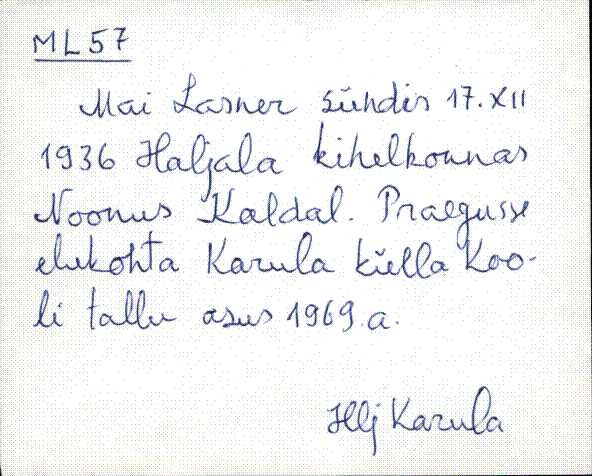 ML57
Mai Lasner sündis 17.XII
1936 Haljala kihelkonnas
Noonus Kaldal. Praegusse
elukohta Karula külla Koo-
li tallu asus 1969.a.
Hlj Karula